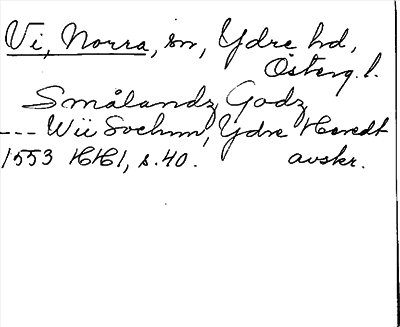 Vi, Norra, sn, Ydre hd,
Österg. l.
Smålandz Godz
--- Wii Sochnn, Ydre Heredt
1553 HH1, s. 40. avskr.